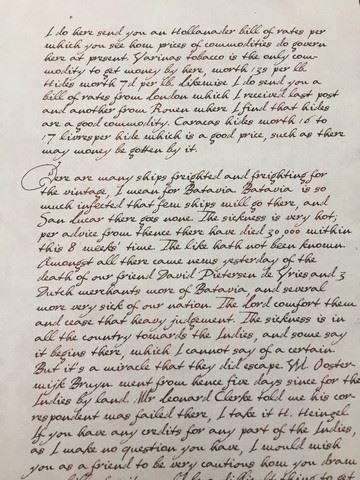 I do here send you an Hollanader bill of rates per
which you see how prices of commodities do govern
here at present. Varinas tobacco is the only com-
modity to get money by here, worth 13s per lb.
Hides worth 7d per lb. Likewise I do send you a
bill of rates from London which I received last post
and another from Rouen where I find that hides
are a good commodity. Caracas hides worth 16 to
17 livres per hide which is a good price, such as there
may money be gotten by it.
Here are many ships freighted and freighting for
the vintage, I mean for Batavia. Batavia is so
much infected that few ships will go there, and
San Lucar there goes none. The sickness is very hot;
per advice from thence there have died 30,000 within
this 8 weeks' time. The like hath not been known.
Amongst all there came news yesterday of the
death of our friend David Pietersen de Vries and 3
Dutch merchants more of Batavia, and several
more very sick of our nation. The Lord comfort them
and cease that heavy judgement. The sickness is in
all the country towards the Indies, and some say
it begins there, which I cannot say of a certain.
But it's a miracle that they did escape. W. Ooster-
wijk Bruyn went from hence five days since for the
Indies by land. Mr Leonard Clerke told me his cor-
respondent was failed there, I take it H. Heingel.
If you have any credits for any part of the Indies,
as I make no question you have, I would wish
you as a friend to be very cautious how you draw